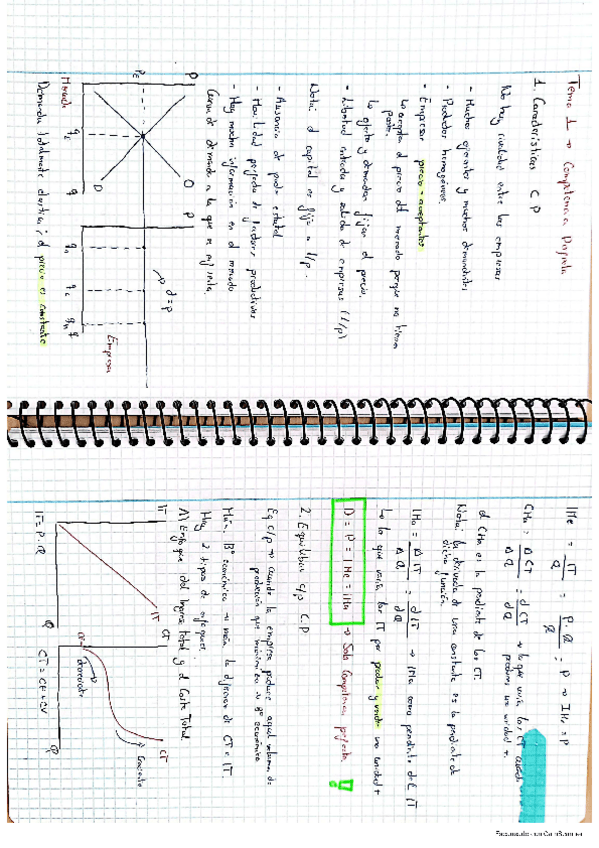 Tema 1 → Competencia Perfecta
1. Características C P
No hay rivalidad entre las empresas
- Muchos oferentes y muchos demandantes
- Productos homogéneos
- Empresas precio-aceptantes
Lo aceptan el precio del mercado porque no tienen
poder.
La oferta y demanda fijan el precio.
- Libertad entrada y salida de empresas (l/p)
Nota: el capital es fijo a c/p.
- Ausencia de poder estatal
- Movilidad perfecta de factores productivos
- Hay mucha información en el mercado
Curva de demanda a la que se enfrenta.
P
O
PE
D
Mercado
qE
q
P
d = P
Empresa
q
Demanda totalmente elástica; el precio es constante
IMe = IT / Q = P · Q / Q = P → IMe = P
CMa = Δ CT / Δ Q = d CT / dQ → lo que varía los CT cuando
produzco una unidad +.
el CMa es la pendiente de los CT.
Nota: la derivada de una constante es la pendiente de
dicha función.
IMa = Δ IT / Δ Q = d IT / dQ → IMa como pendiente de IT
↳ lo que varía los IT por producir y vender una unidad +
D = P = IMe = IMa → Solo Competencia perfecta !
2. Equilibrio c/p C.P
Eq c/p → cuando la empresa produce aquel volumen de
producción que maximiza su Bº económico
Máx. Bº económico → máx. la diferencia de CT e IT.
Hay 2 tipos de enfoques.
A) Enfoque del Ingreso Total y el Coste Total
IT
IT
Q
IT = P · Q
CT
CT
CF
decreciente
Creciente
Q
CT = CF + CV
Escaneado con CamScanner